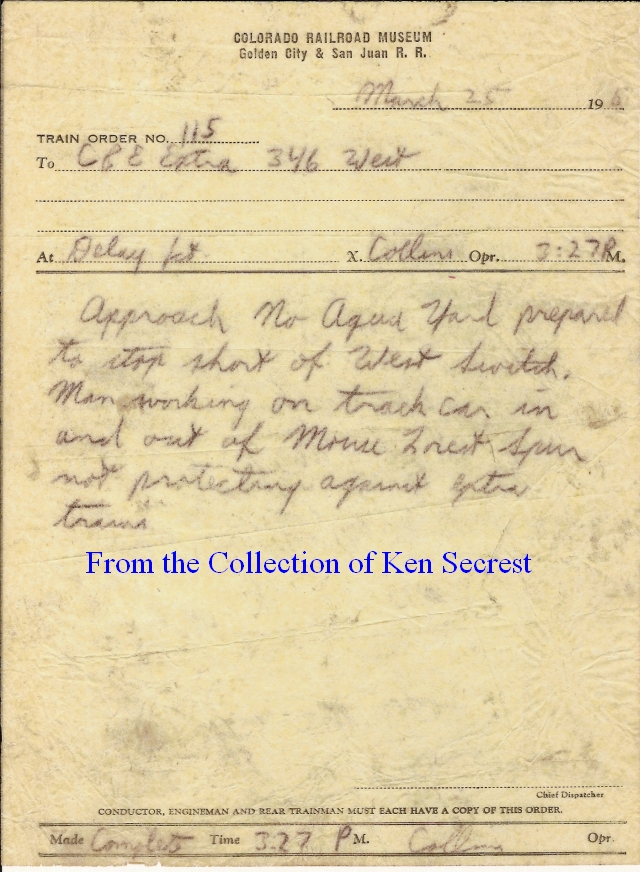 COLORADO RAILROAD MUSEUM
Golden City & San Juan R. R.
March 25 196
TRAIN ORDER NO. 115
To C & E Extra 346 West
At Delay Jct. X. Collins Opr. 3:27 P.M.
Approach No Agua Yard prepared
to stop short of West Switch.
Man working on track car in
and out of Mouse Trest Spur
not protecting against extra
trains
From the Collection of Ken Secrest
Chief Dispatcher
CONDUCTOR, ENGINEMAN AND REAR TRAINMAN MUST EACH HAVE A COPY OF THIS ORDER.
Made Complete Time 3:27 P M. Collins Opr.